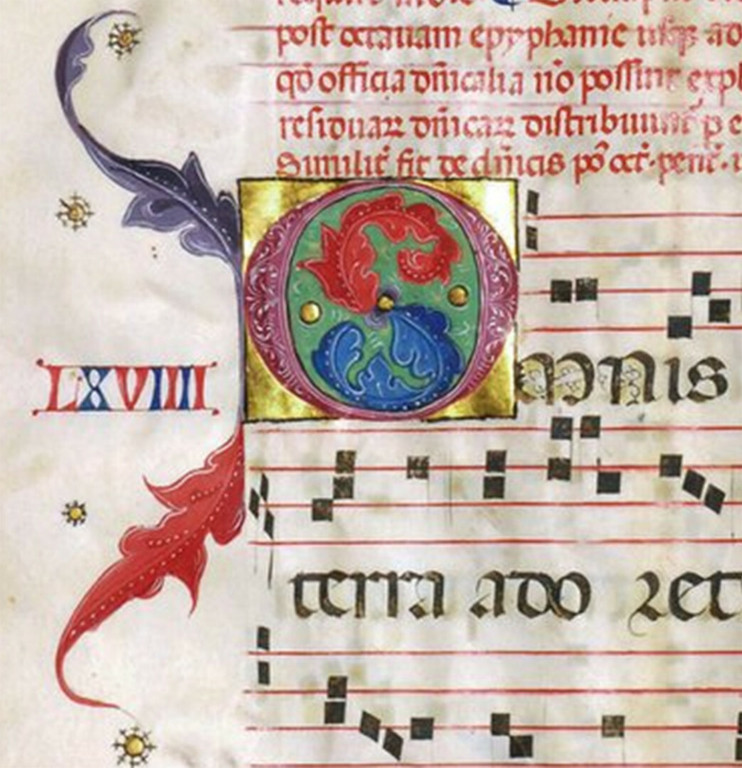 post octauam epyphanie usq; ad
qd officia dñicalia nō possint expl
residuaz dñicaz distribuunt̄ p e
Similit̄ fit de dñicis pꝰ oct. pent. 
LXVIIII
Omnis
terra ado ret